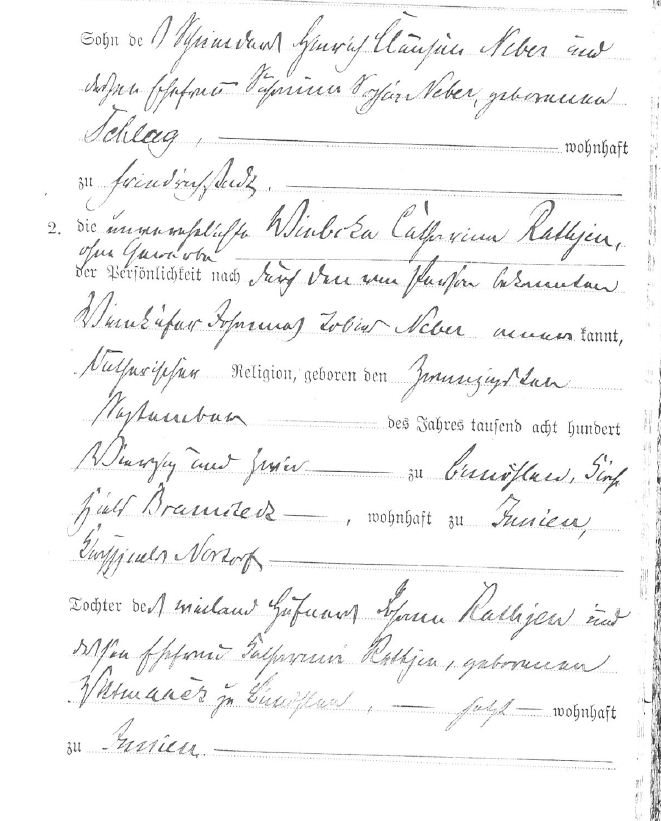 Sohn des Schneiders Hinrich Claußen Neber und
dessen Ehefrau Neber, geborenen
Schlag, wohnhaft
zu Friedrichstadt.
2. die unverehelichte Wiebcke Catharina Rathjen,
ohne Gewerbe
der Persönlichkeit nach durch den von Person bekannten
Johannes Tobias Neber anerkannt,
lutherischer Religion, geboren den zwanzigsten
September des Jahres tausend acht hundert
vierzig und zwei zu Bimöhlen, Kirch
spiels Bramstedt, wohnhaft zu Innien,
Kirchspiels Nortorf
Tochter des weiland Hufners Johann Rathjen und
dessen Ehefrau Catharina Rathjen, geborenen
Wittmaack zu Bimöhlen, jetzt wohnhaft
zu Innien.